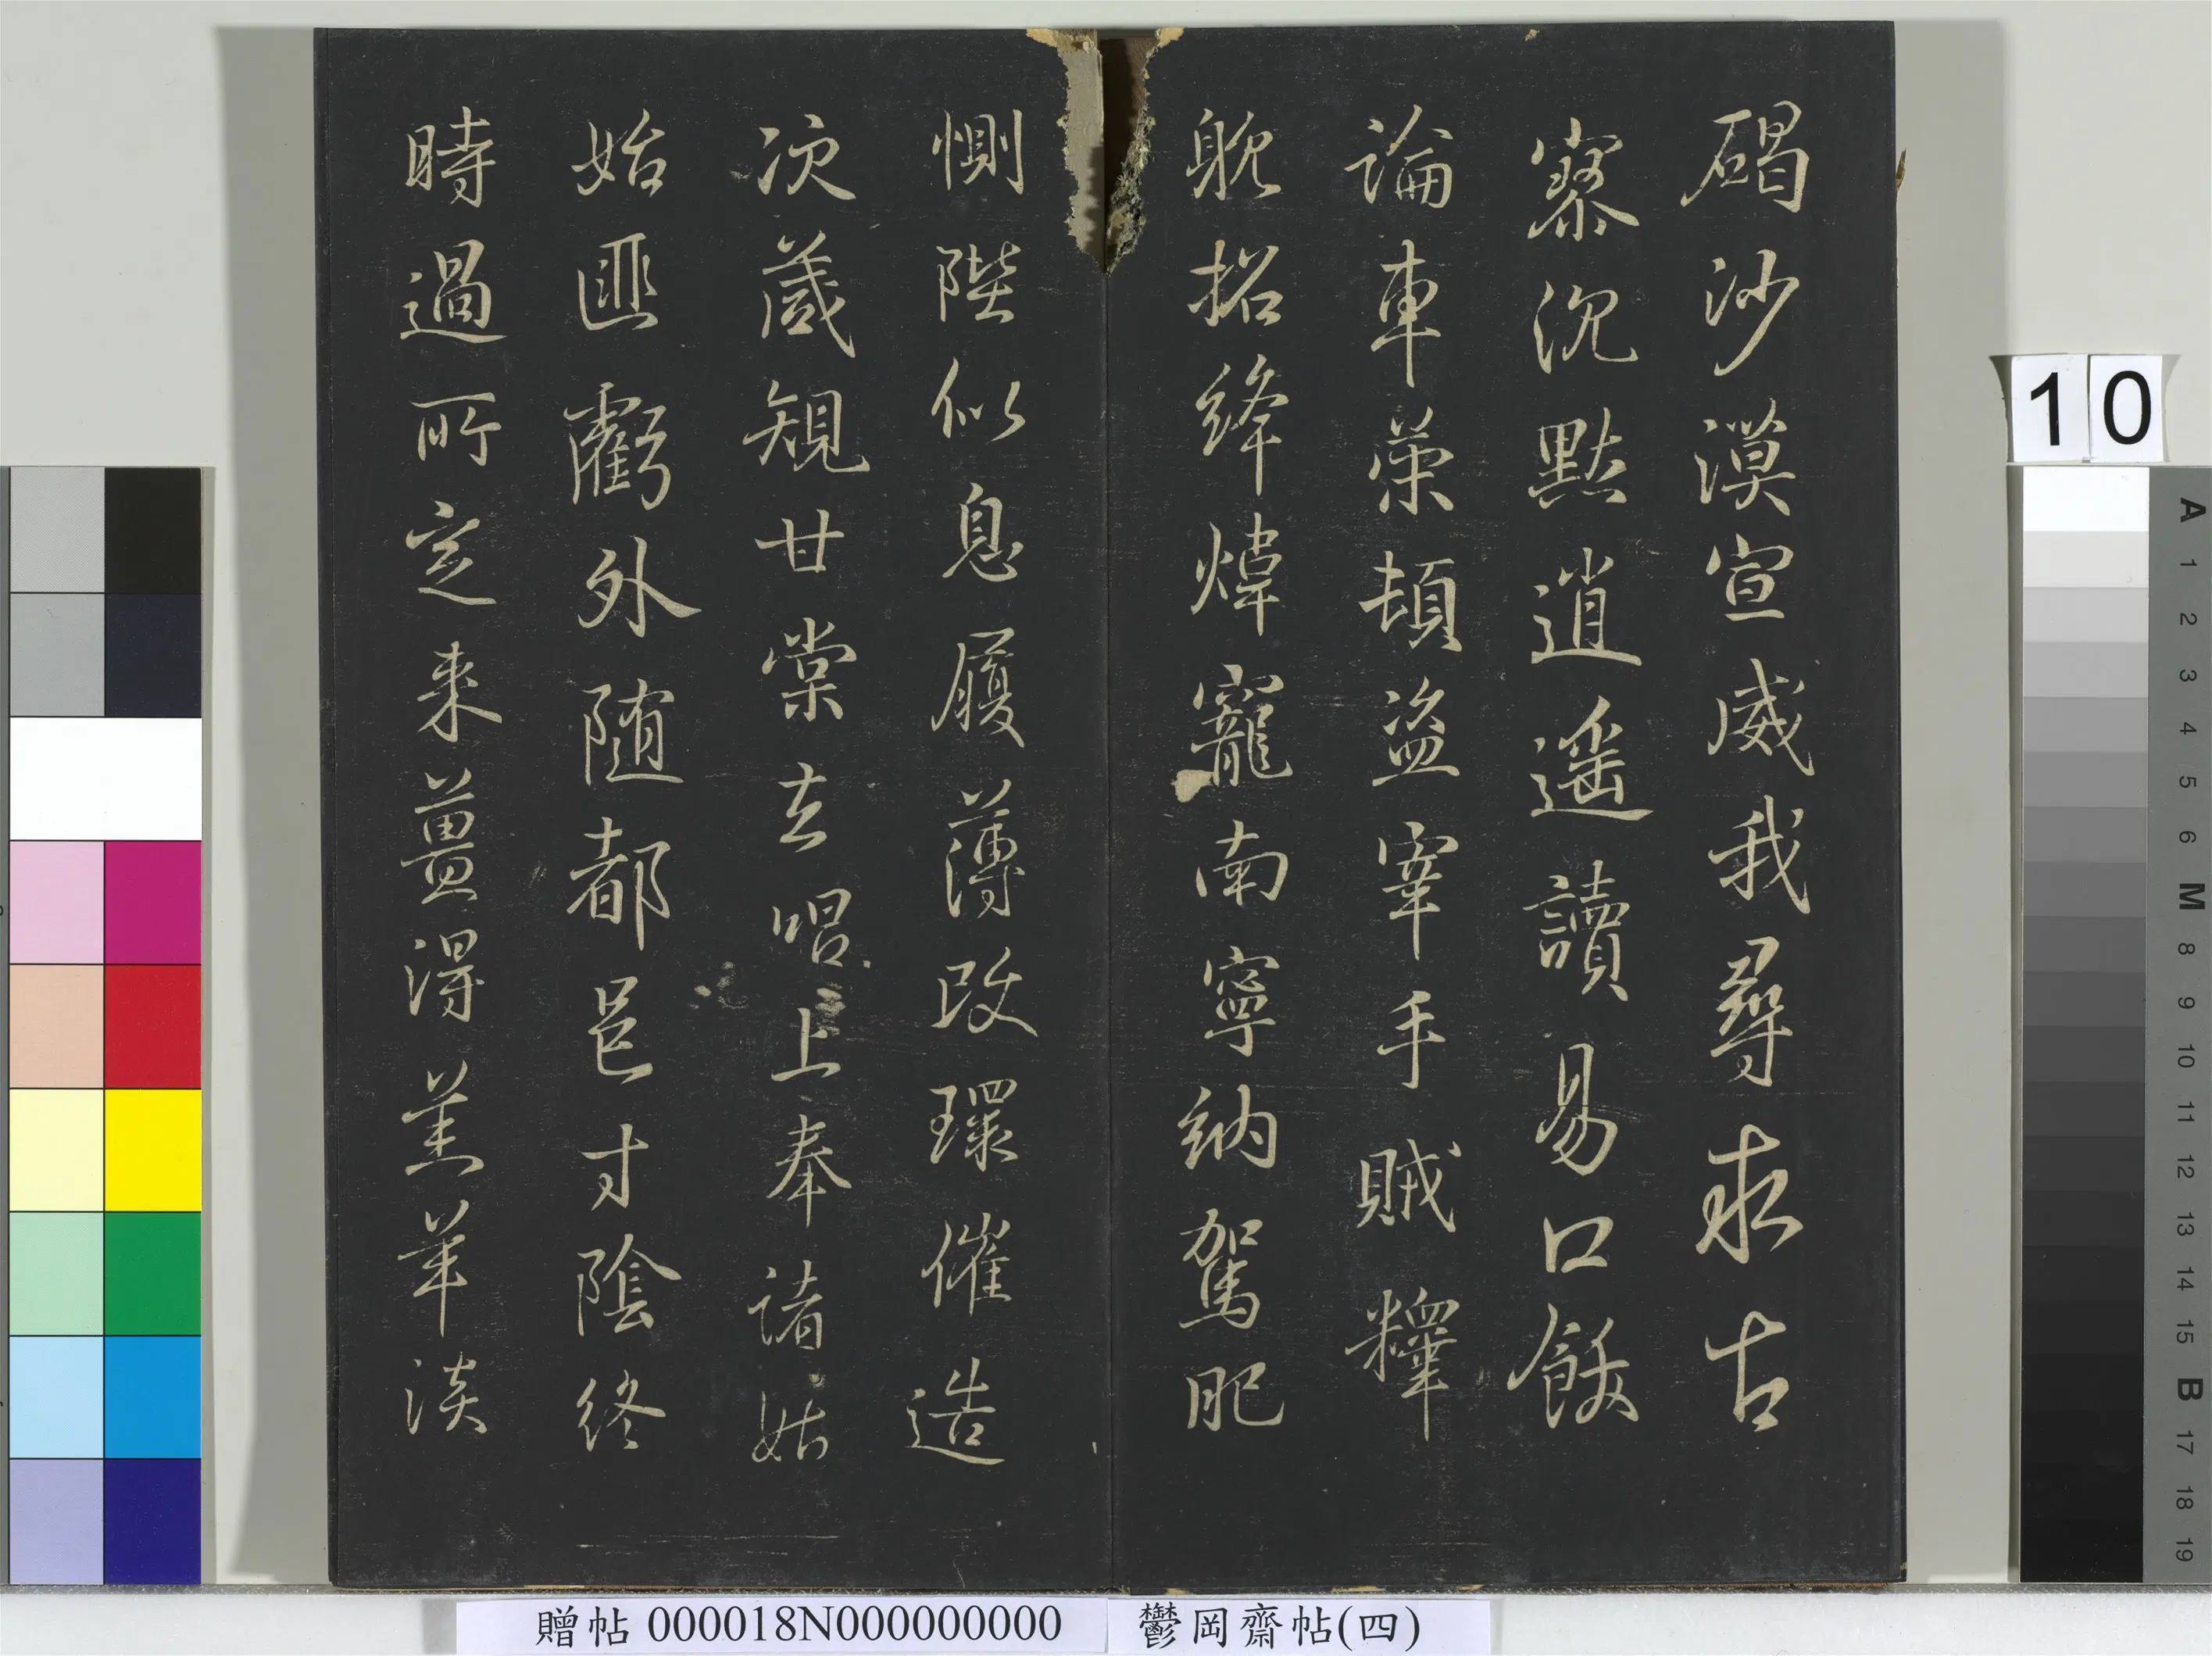 碣沙漠宣威我尋求古
寮沉默逍遥讀易口飯
論車策頓盜宰手賊釋
躭招絳煒寵南寧納駕肥
惻陛似息履薄改環催造
次箴規甘棠去唱上奉諸姑
始匪虧外随都邑寸陰終
時過所定来薑淂羔羊淡
10
A 1 2 3 4 5 6 M 8 9 10 11 12 13 14 15 B 17 18 19
贈帖 000018N000000000
鬱岡齋帖(四)